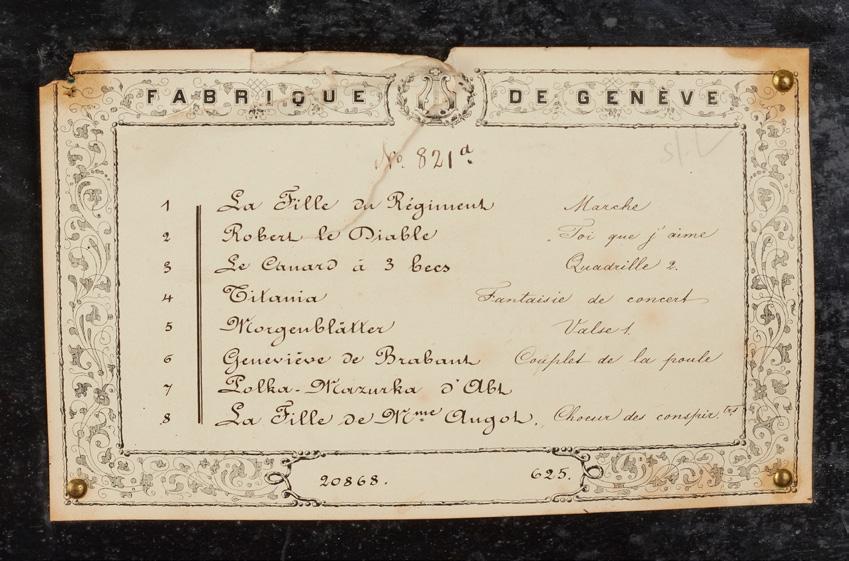 FABRIQUE DE GENÈVE
No. 821a
1 La Fille du Régiment Marche
2 Robert le Diable Toi que j'aime
3 Le Canard à 3 becs Quadrille 2.
4 Titania Fantaisie de concert
5 Morgenblätter Valse 1
6 Geneviève de Brabant Couplet de la poule
7 Polka-Mazurka d'Abt
8 La Fille de Mme Angot, Choeur des conspir.trs
20868. 625.